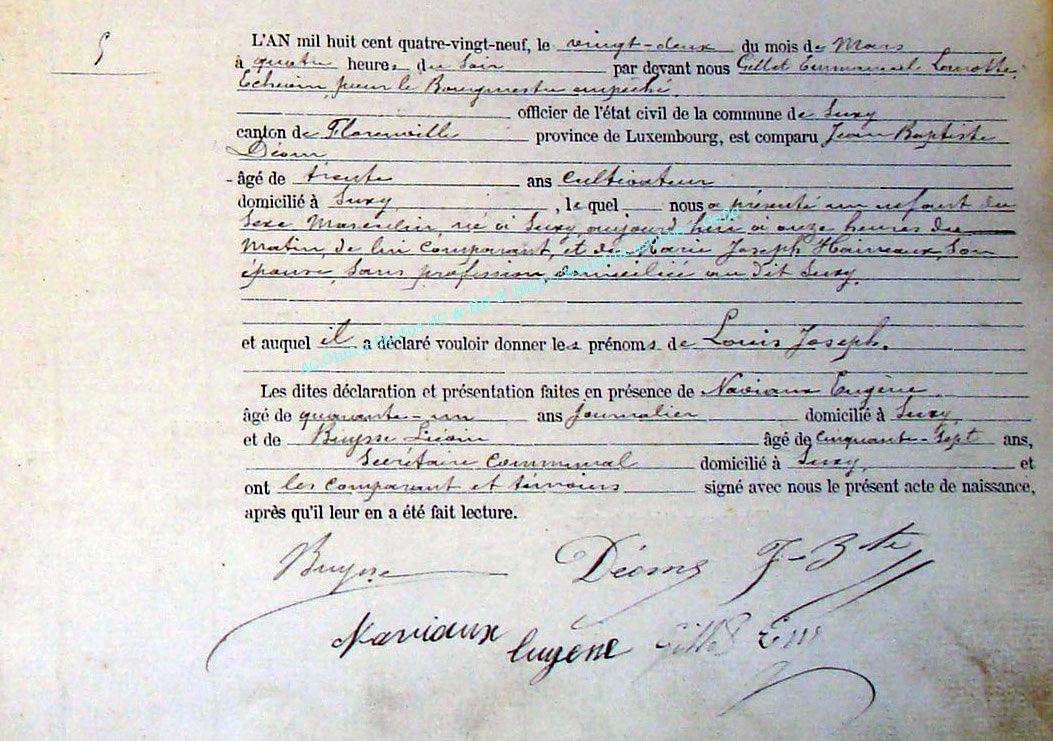 5
L'AN mil huit cent quatre-vingt-neuf, le vingt-deux du mois de Mars
à quatre heures du Soir par devant nous Gillet Emmanuel
Echevin, pour le Bourgmestre empêché.
officier de l'état civil de la commune de Suxy
canton de Florenville province de Luxembourg, est comparu Jean Baptiste
Déom
âgé de trente ans Cultivateur
domicilié à Suxy, le quel nous a présenté un enfant du
Sexe Masculin, né à Suxy, aujourd'hui à onze heures du
Matin, de lui Comparant, et de Marie Joseph Haineaux, Son
épouse, Sans profession, domiciliée au dit Suxy.
et auquel il a déclaré vouloir donner les prénoms de Louis Joseph.
Les dites déclaration et présentation faites en présence de Naviaux Eugène
âgé de quarante-un ans Journalier domicilié à Suxy
et de Buysse âgé de Cinquante-Sept ans,
Secrétaire Communal domicilié à Suxy, et
ont les Comparant et témoins signé avec nous le présent acte de naissance,
après qu'il leur en a été fait lecture.
Buysse Déom J-Bte
Naviaux Eugène Gillet Em